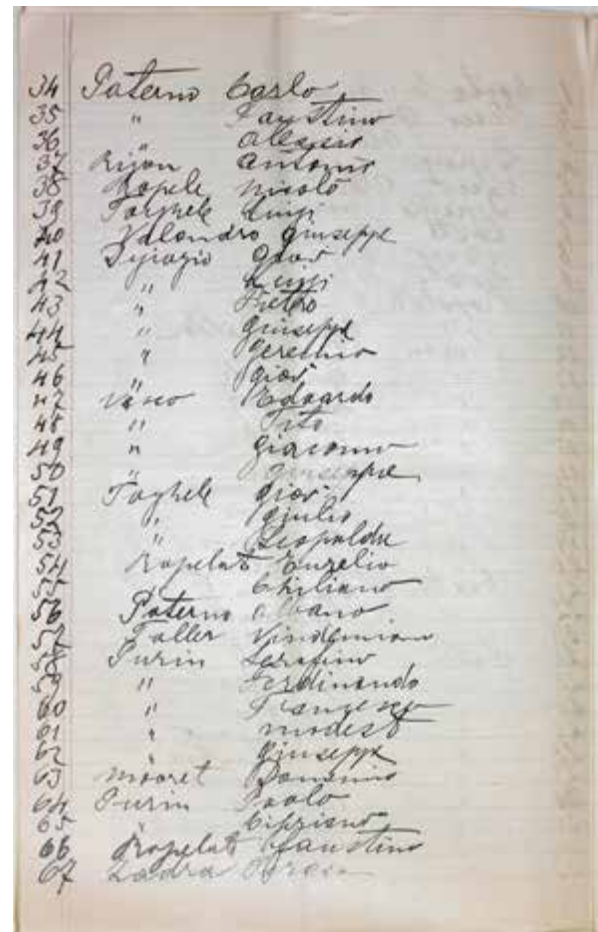 34 Paterno Carlo
35 " Faustino
36 Alessio
37 Rijon Antonio
38 Ropele Nicolò
39 Torghele Luigi
40 Valandro Giuseppe
41 Giov
42 " Luigi
43 " Pietro
44 " Giuseppe
45 "
46 " Giov
47 Edoardo
48 " Tito
49 " Giacomo
50 " Giuseppe
51 Toghele Giov
52 " Giulio
53 " Leopoldo
54 Ropelato Eurelio
55
56 Paterno Albano
57 Faller Vindemiano
58 Purin Serafino
59 " Ferdinando
60 " Francesco
61 " Modest
62 " Giuseppe
63 Domenico
64 Purin Paolo
65 Cipriano
66 Ropelato Faustino
67 Zadra